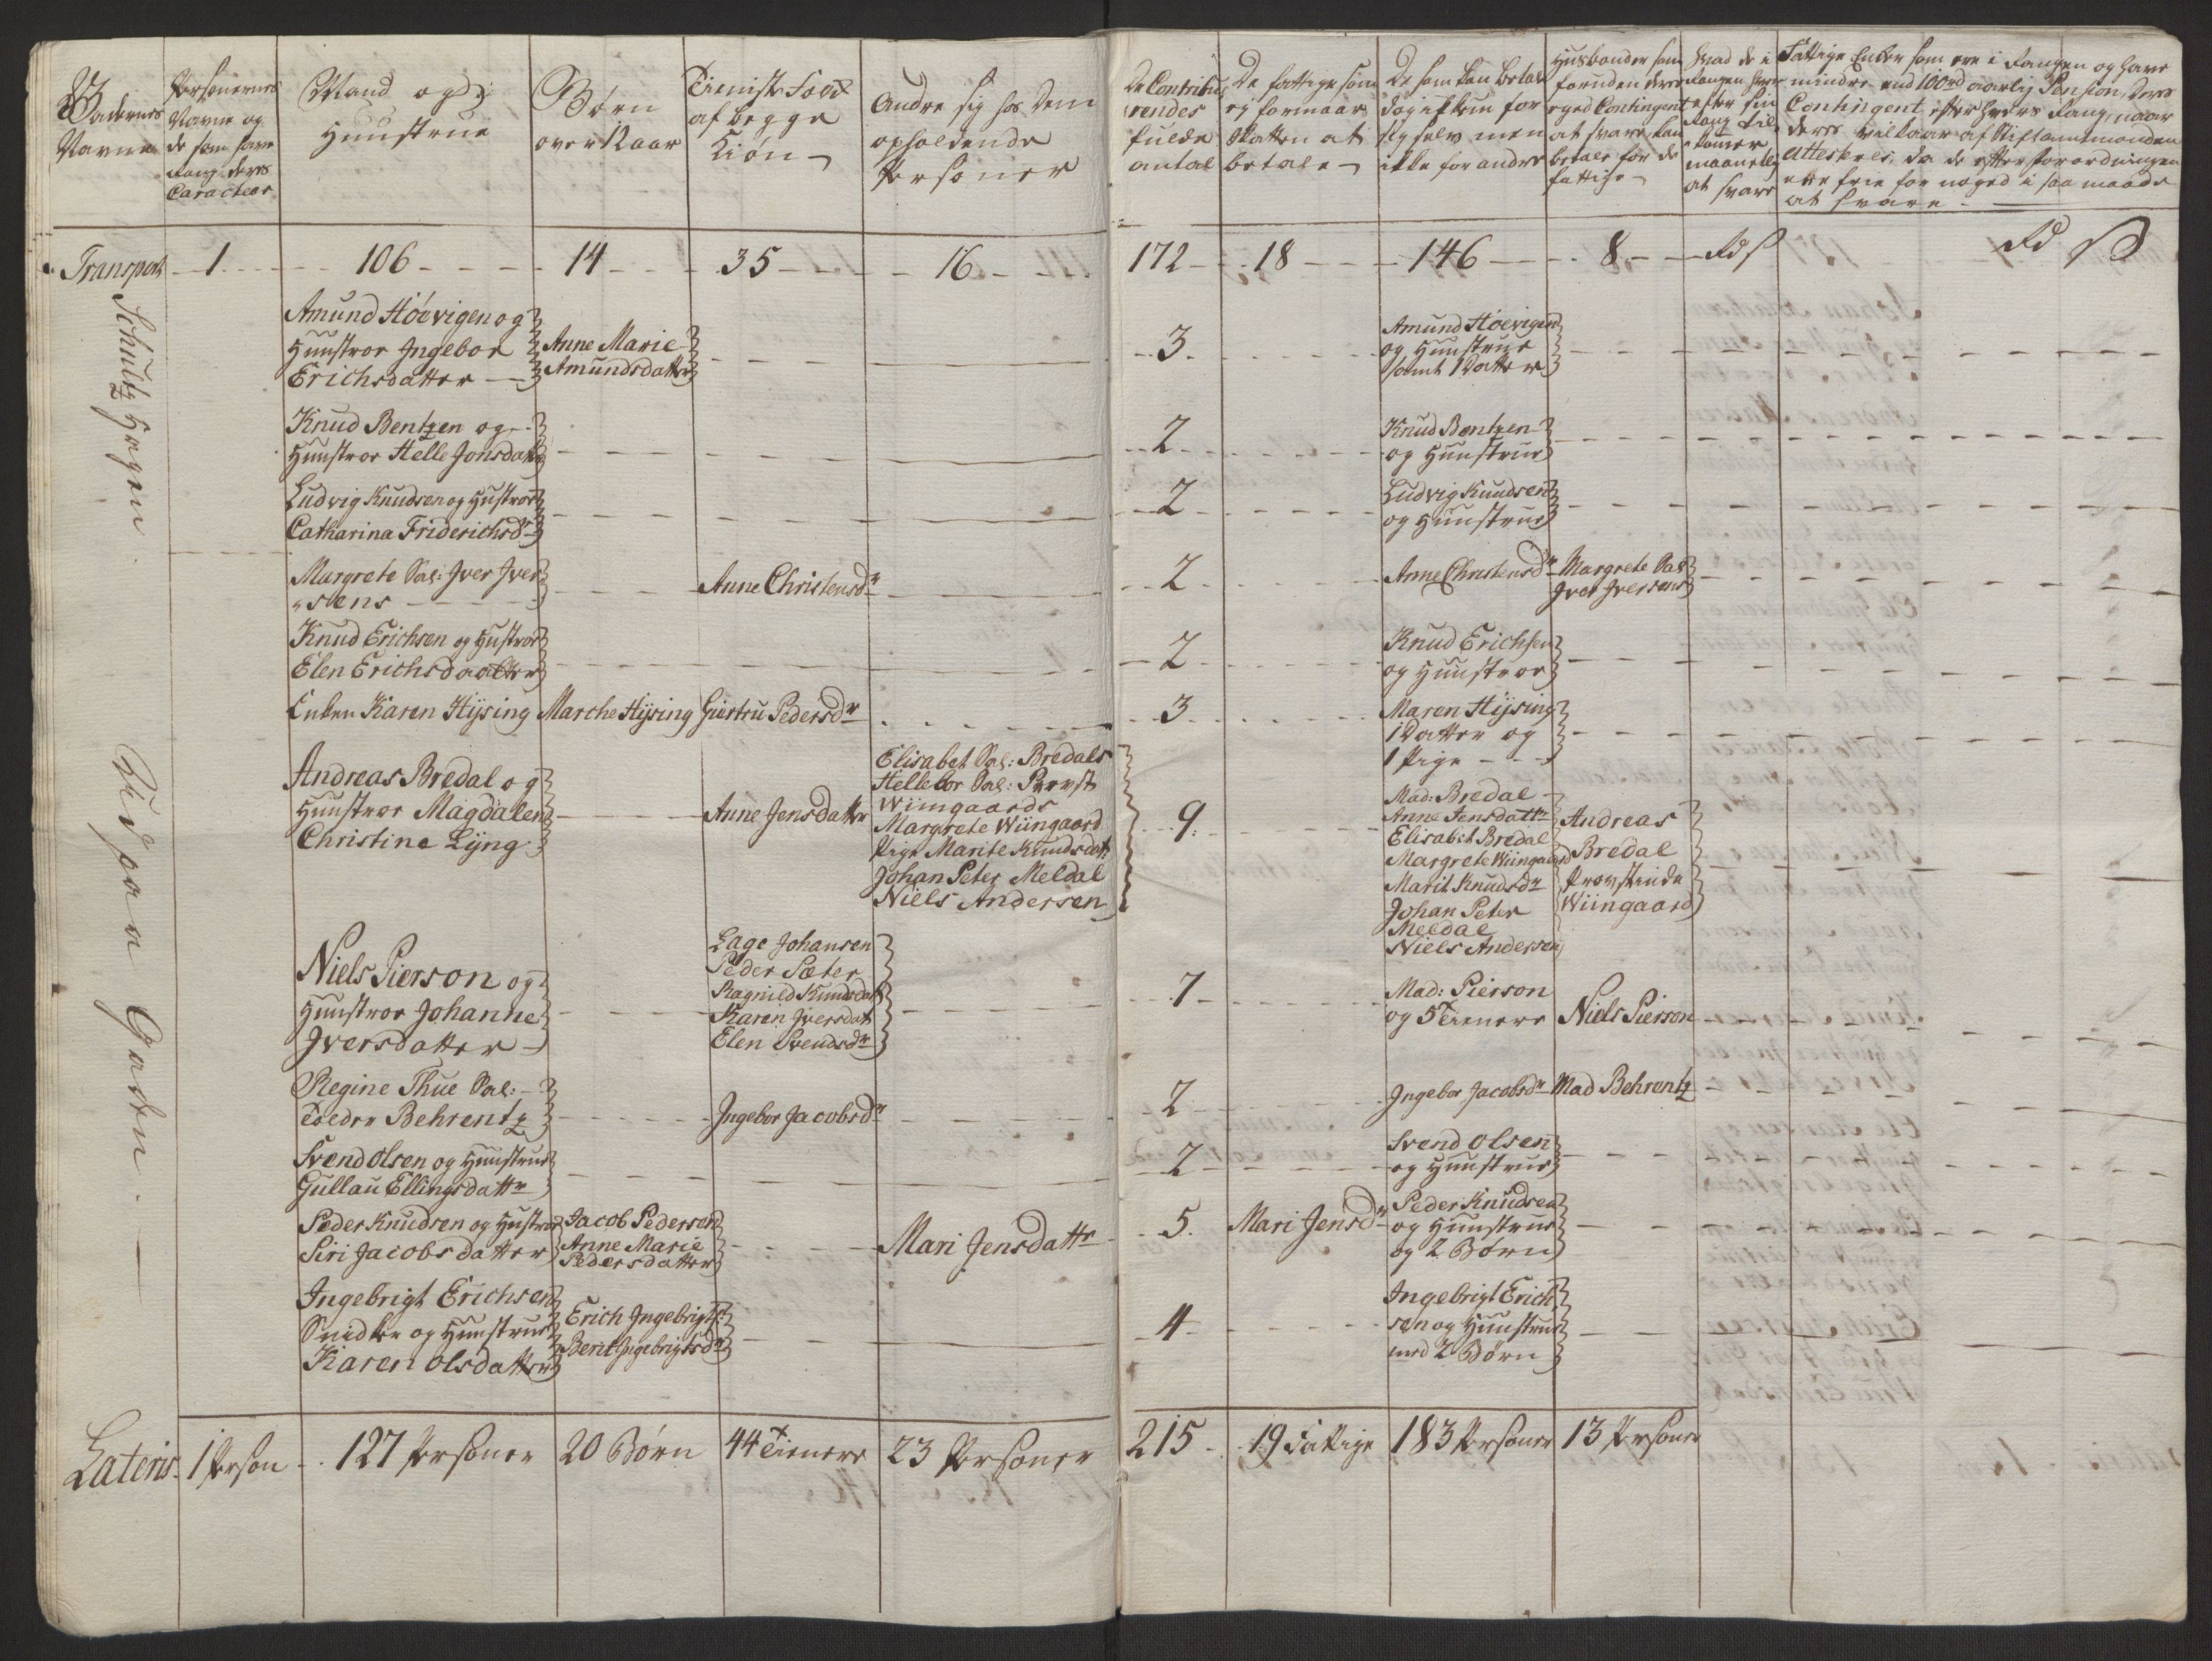 Gadernes
Navne
Persohnernes
Navne og
de som have
Rang deres
Caracteer
Mand og
Huustrue
Børn
over 12 aar
Tieniste Folck
af begge
Kiøn
Andre sig hos dem
opholdende
Personer
De Contribu
erendes
fulde
antal
De fattige som
ej formaar
Skatten at
betale
De som kan betale
dog ikkun for
sig selv men
ikke for andre
Husbonder som
foruden deres
eget Contingent
at svare kan
betale for de
fattige
Hvad de i
Rangen har
efter sin
Rang til
kommer
maanetlig
at svare
Fattige Enker som ere i Rangen og have
mindre end 100 rd aarlig Pension, deres
Contingent efter hvers Rang, naar
deres vilkaar af Stiftamtmanden
Attesteres, da de efter forordningen
ere frie for noget i saa maade
at svare
Transport 1 106 14 35 16 172 18 146 8 Rd ß Rd ß
Schultz Hogen
Amund Høevigen og
Huustroe Ingebor
Erichsdatter
Anne Marie
Amundsdatter
3
Amund Høevigen
og Huustrue
samt 1 Datter
Knud Bentzen og
Huustroe Helle Jonsdatter
2
Knud Bentzen
og Huustrue
Ludvig Knudsen og Hustroe
Catharina Friderichsdr
2
Ludvig Knudsen
og Huustrue
Margrete Sal: Iver Iver
sens
Anne Christensdr
2
Anne Christensdr
Margrete Sal
Iver Iversens
Knud Erichsen og Hustroe
Elen Erichsdaatter
2
Knud Erichsen
og Huustroe
Enken Karen Hÿsing Marche Hÿsing Giertru Pedersdr
3
Maren Hÿsing
1 Datter og
1 Pige
Zidpaa Gaden
Andreas Bredal og
Huustroe Magdalena
Christine Lÿng
Anne Jensdatter
Elisabet Sal: Bredals
Hellebor Sal: Provst
Wiingaards
Margrete Wiingaard
Pige Marite Knudsdat
Johan Peter Meldal
Niels Andersen
9
Mad: Bredal
Anne Jensdattr
Elisabet Bredal
Margrete Wiingaard
Marit Knudsdr
Johan Peter
Meldal
Niels Andersen
Andreas
Bredal
Provstinde
Wiingaard
Niels Pierson og
Huustroe Johanne
Iversdatter
Lage Johansen
Peder Sæter
Ragnild Knudsdat
Karen Iversdat
Elen Svendsdr
7
Mad: Pierson
og 5 Tienere
Niels Pierson
Regine Thue Sal:
Peder Behrentz
Ingebor Jacobsdr
2
Ingebor Jacobsdr
Mad Behrentz
Svend Olsen og Huustrue
Gullau Ellingsdattr
2
Svend Olsen
og Huustrue
Peder Knudsen og Hustroe
Siri Jacobsdatter
Jacob Pedersen
Anne Marie
Pedersdatter
Mari Jensdattr
5
Mari Jensdr
Peder Knudsen
og Huustrue
og 2 Børn
Ingebrigt Erichsen
Snidker og Huustrue
Karen Olsdatter
Erich Ingebrigts:
Berit Ingebrigtsdr
4
Ingebrigt Erich
sen og Huustrue
med 2 Børn
Lateris 1 Person 127 Personer 20 Børn 44 Tienere 23 Personer 215 19 Fattige 183 Personer 13 Personer